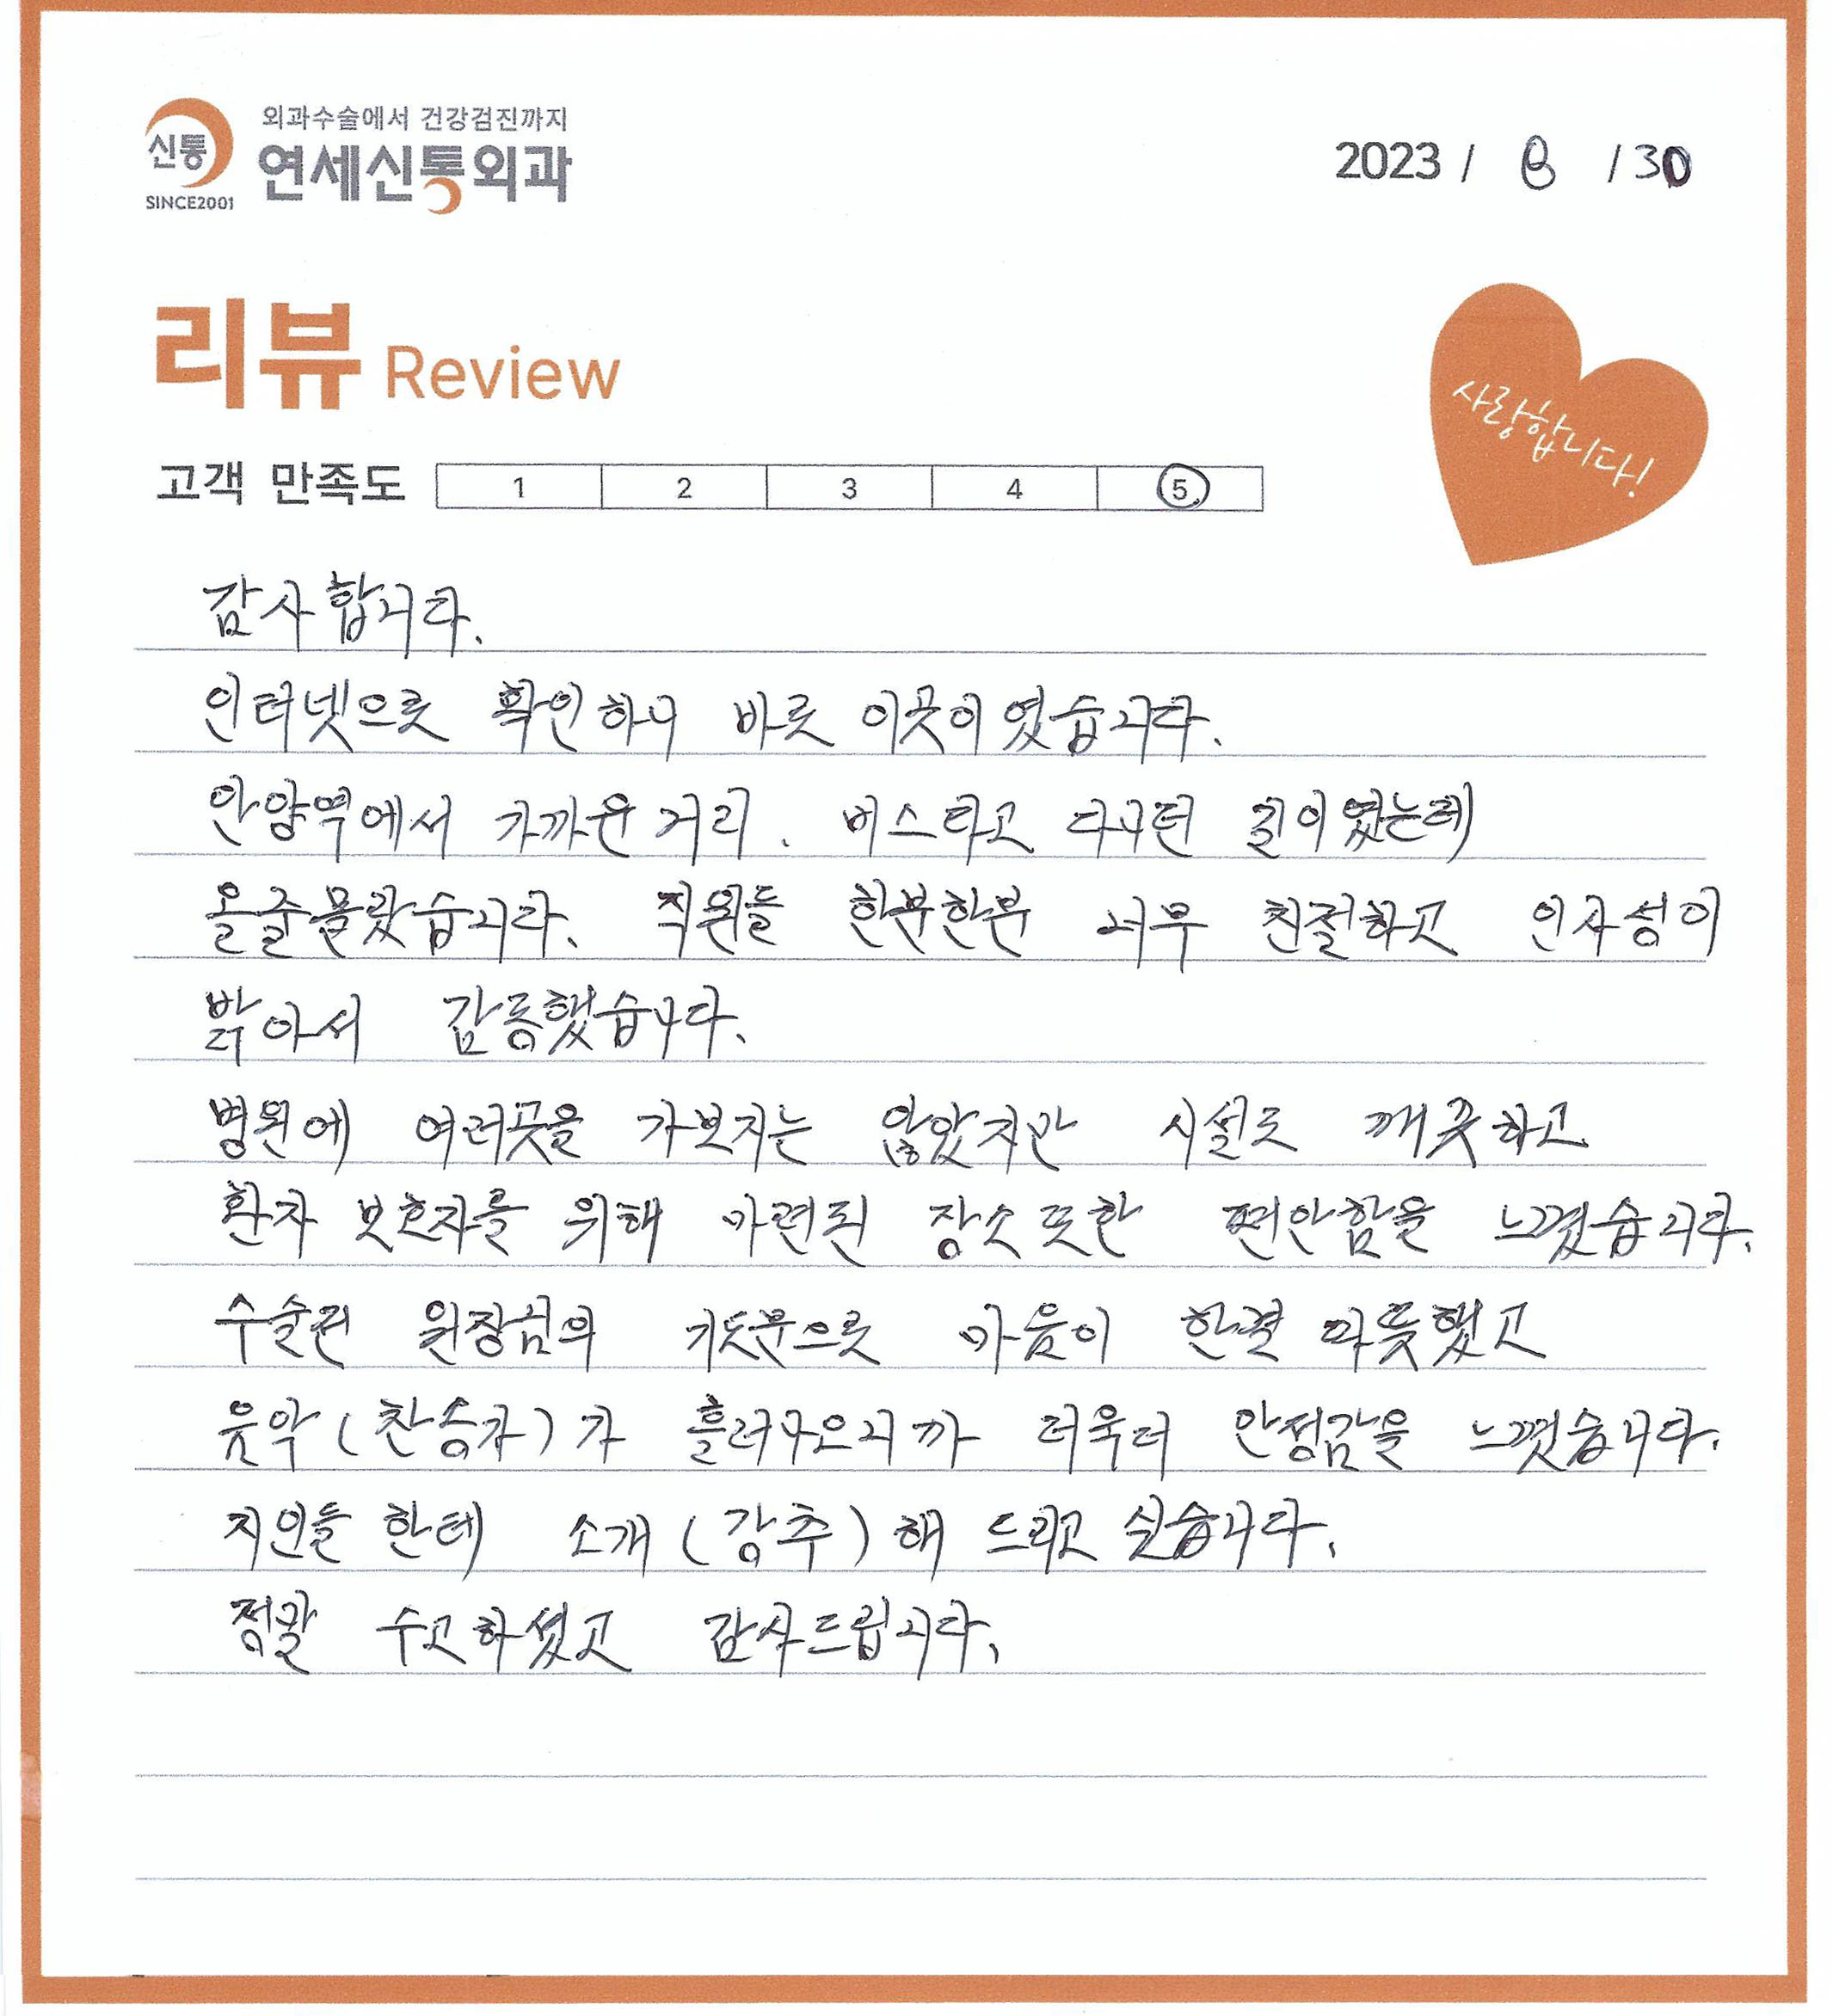 신통
SINCE2001
외과수술에서 건강검진까지
연세신통외과
2023 / 8 / 30
리뷰 Review
사랑합니다!
고객 만족도 1 2 3 4 5
감사합니다.
인터넷으로 확인하니 바로 이곳이였습니다.
안양역에서 가까운거리. 버스타고 다니던 길이였는데
올줄몰랐습니다. 직원들 한분한분 너무 친절하고 인사성이
밝아서 감동했습니다.
병원에 여러곳을 가보지는 않았지만 시설도 깨끗하고
환자 보호자를 위해 마련된 장소또한 편안함을 느꼈습니다.
수술전 원장님의 기도문으로 마음이 한결 따뜻했고
음악(찬송가)가 흘러나오니까 더욱더 안정감을 느꼈습니다.
지인들 한테 소개(강추)해 드리고 싶습니다.
정말 수고하셨고 감사드립니다.